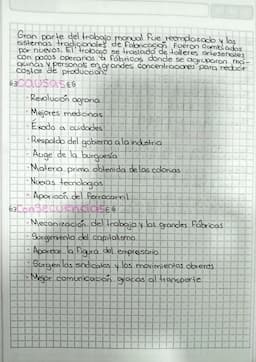 Gran parte del trabajo manual fue reemplazado y los
sistemas tradicionales de fabricación fueron cambiados
por nuevos. El trabajo se trasladó de talleres artesanales
con pocos operarios a fábricas donde se agruparon má-
quinas y personas en grandes concentraciones para reducir
costos de producción.
Causas
· Revolución agraria
· Mejores medicinas
· Éxodo a ciudades
· Respaldo del gobierno a la industria
· Auge de la burguesía
· Materia prima obtenida de las colonias
· Nuevas tecnologías
· Aparición del ferrocarril
Consecuencias
· Mecanización del trabajo y las grandes Fábricas
· Surgimiento del capitalismo
· Aparece la figura del empresario
· Surgen los sindicatos y los movimientos obreros
· Mejor comunicación gracias al transporte